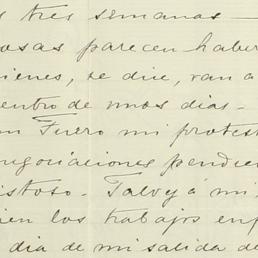 s tres semanas —
osas parecen haber
ienes, se dice, van a
entro de unos dias —
Fuero mi protest
negociaciones pendien
istoso — Talvez á mi
ien los trabajos
dia de mi salida de